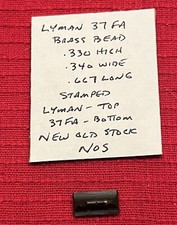 LYMAN 37FA
BRASS BEAD
.330 HIGH
.340 WIDE
.667 LONG
STAMPED
LYMAN - TOP
37FA - BOTTOM
NEW OLD STOCK
NOS